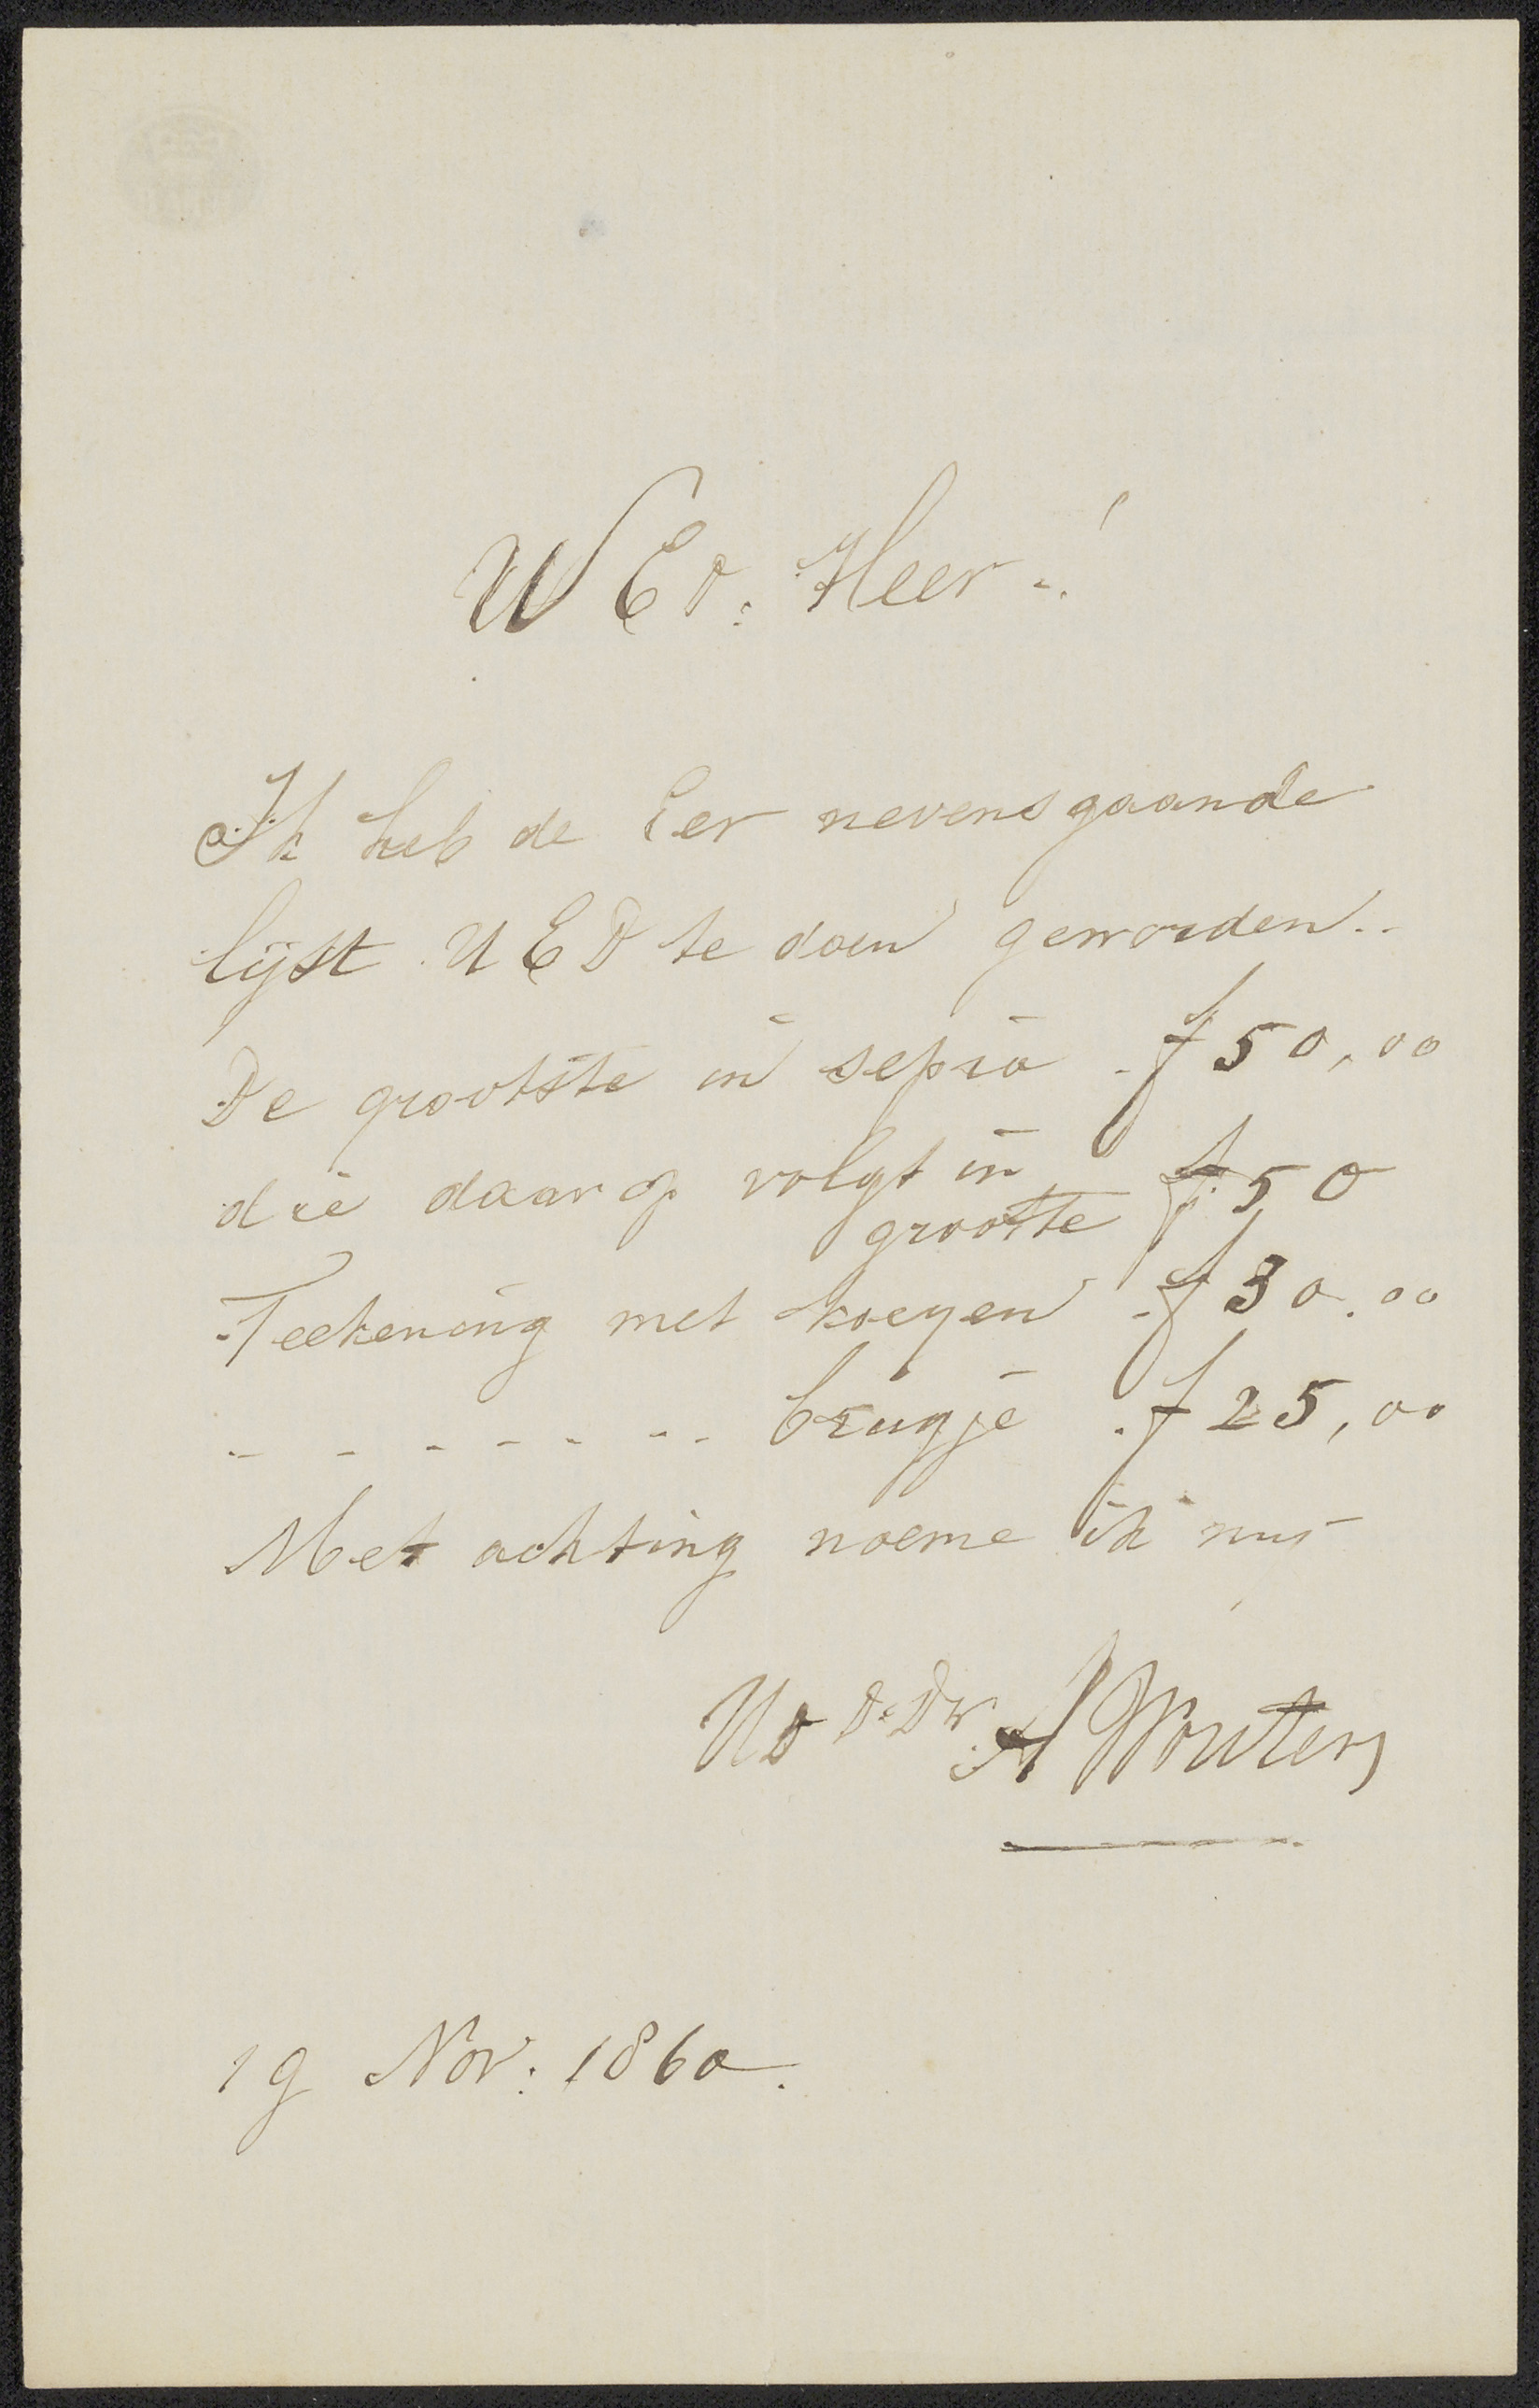 WED. Heer!
Ik heb de Eer nevensgaande
lijst UED te doen geworden..
De grootste in sepia f 50,00
die daar op volgt in
grootte f 50
Teekening met koeyen f 30.00
- - - - - - - brugje f 25,00
Met achting noeme ik mij
UD D: Dr A Wouters
19 Nov: 1860.